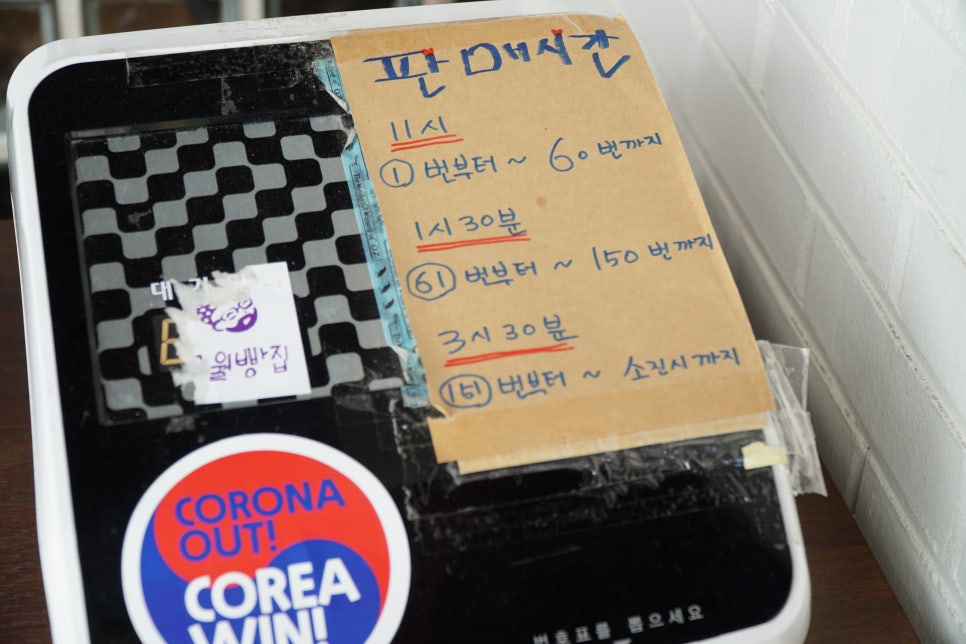 판매시간
11시
① 번부터 ~ 60 번까지
1시 30분
61 번부터 ~ 150 번까지
3시 30분
151 번부터 ~ 소진시 까지
대
월빵집
CORONA
OUT!
COREA
WIN!
번호표를 뽑으세요